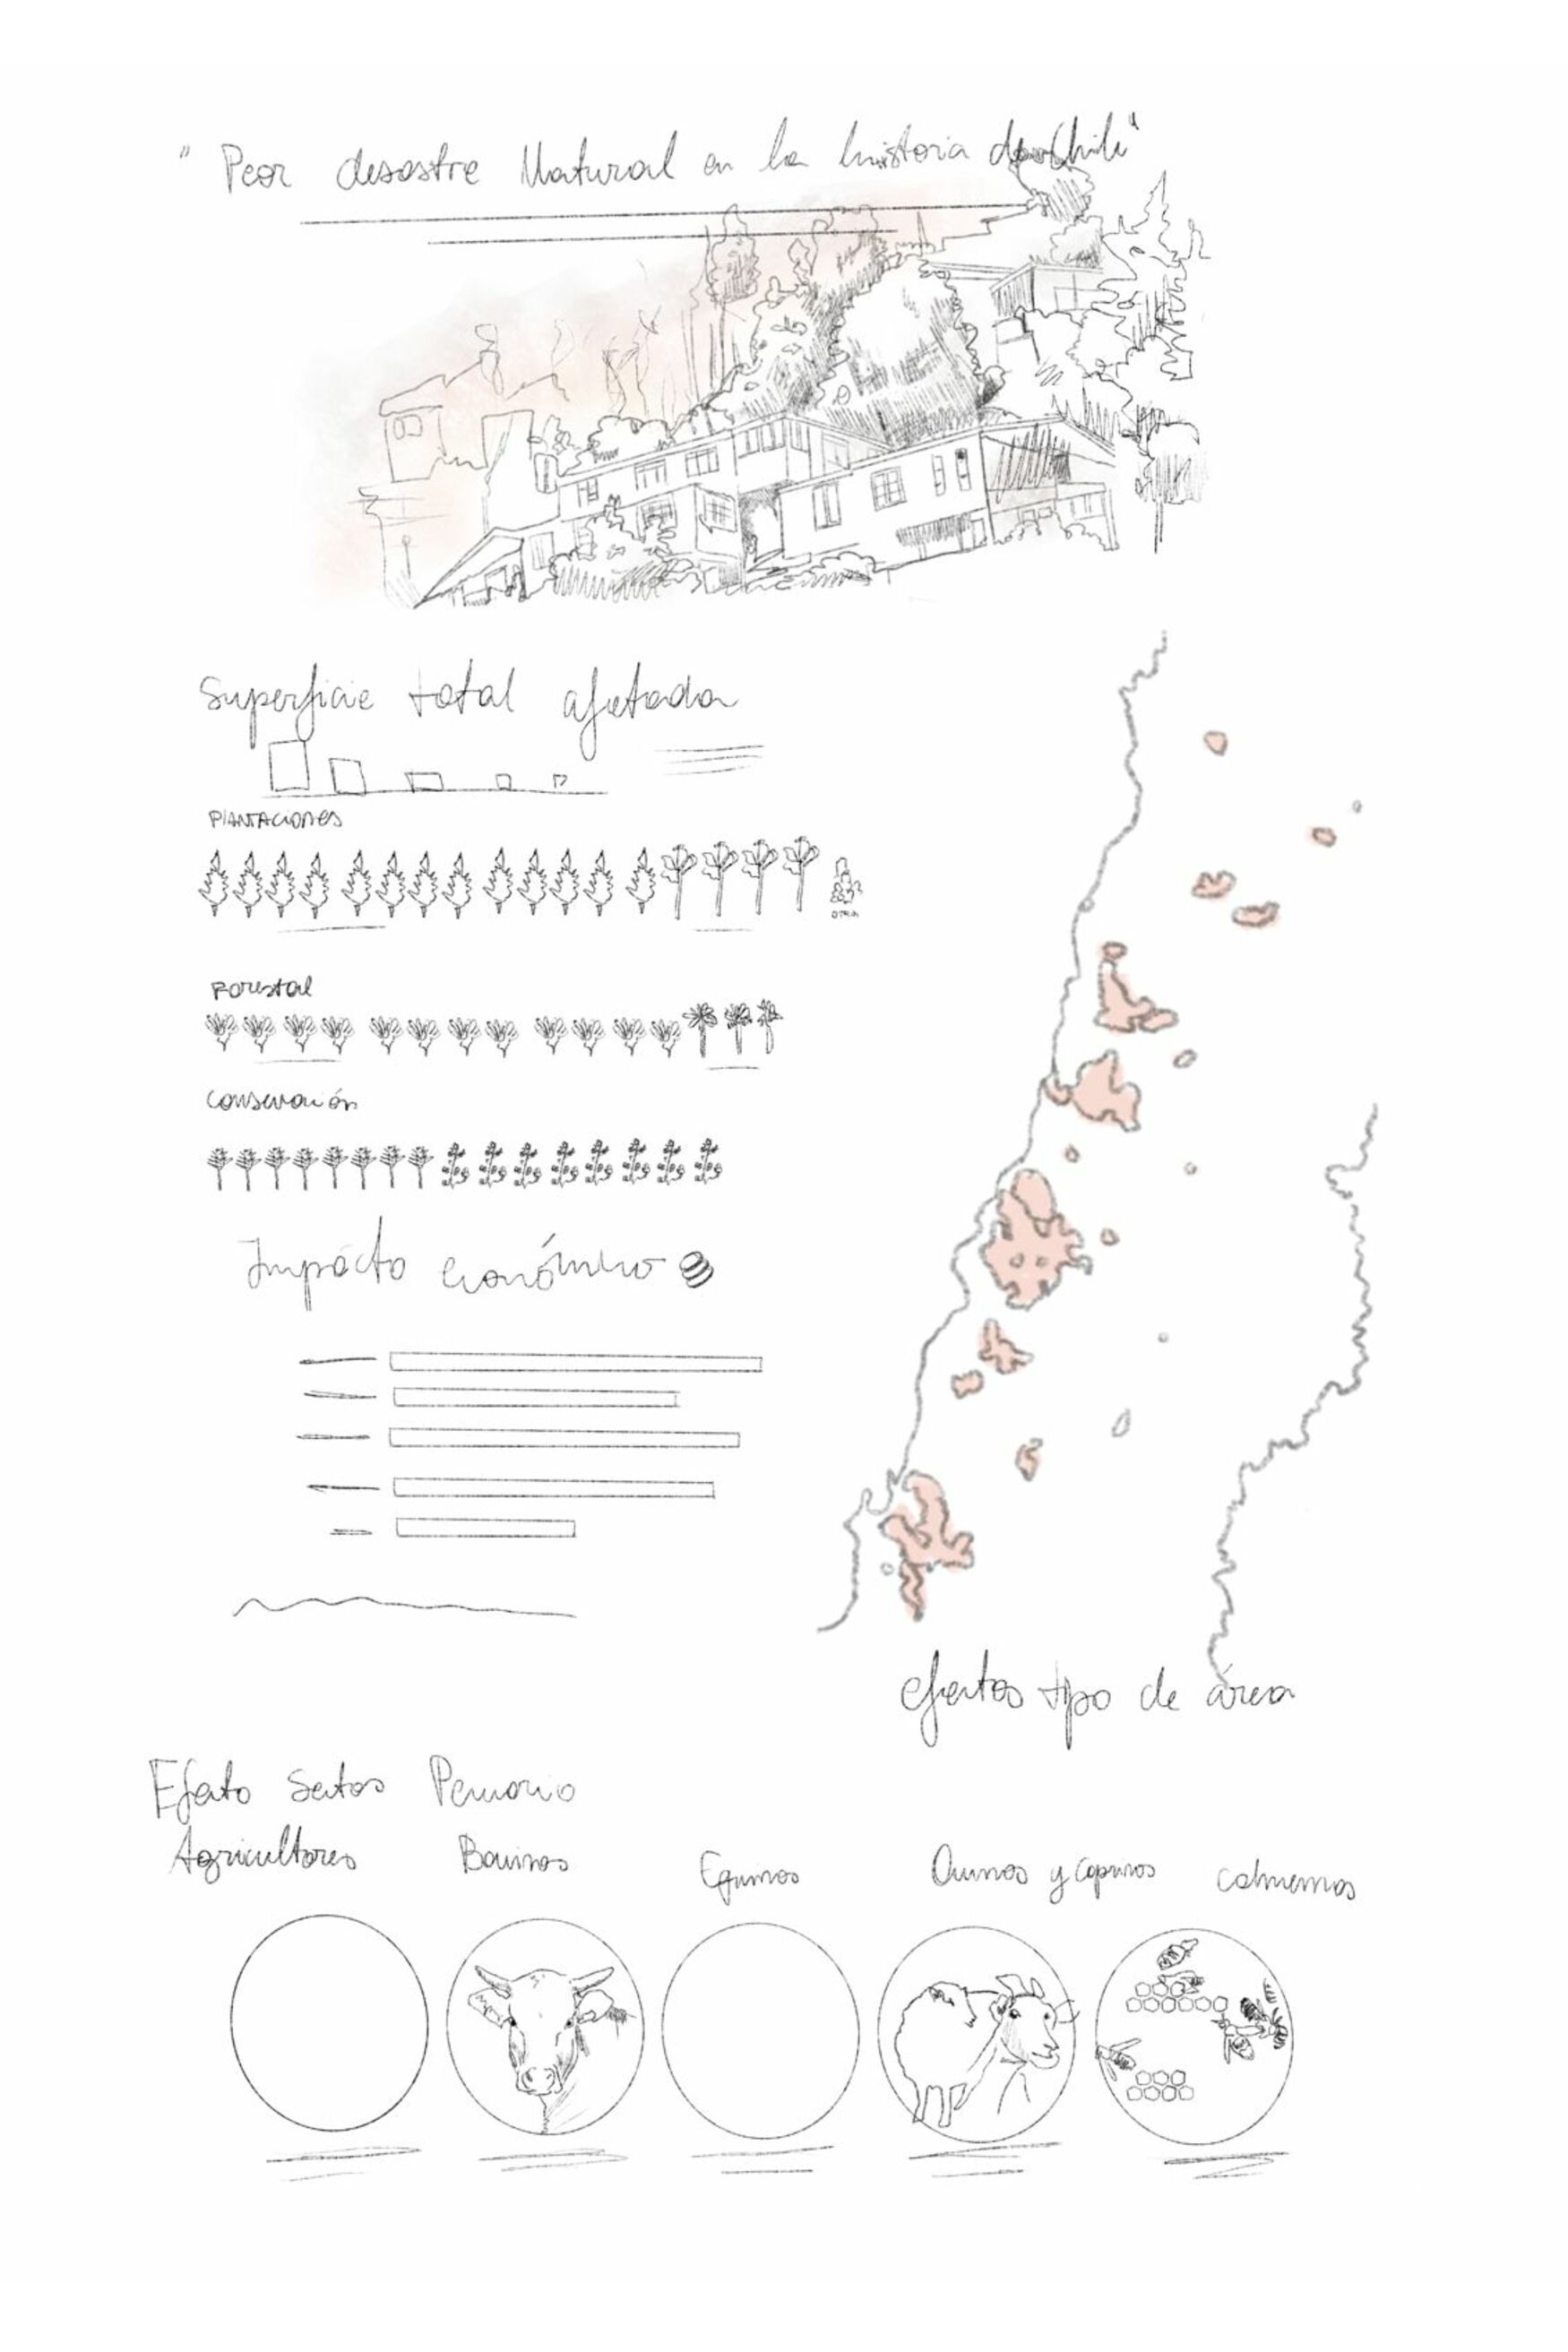 "Peor desastre Natural en la historia de Chile"
Superficie total afectada
PLANTACIONES
OTRA
Forestal
Conservación
Impacto económico
efectos tipo de área
Efecto Sector Pecuario
Agricultores
Bovinos
Equinos
Ovinos y caprinos
colmenas